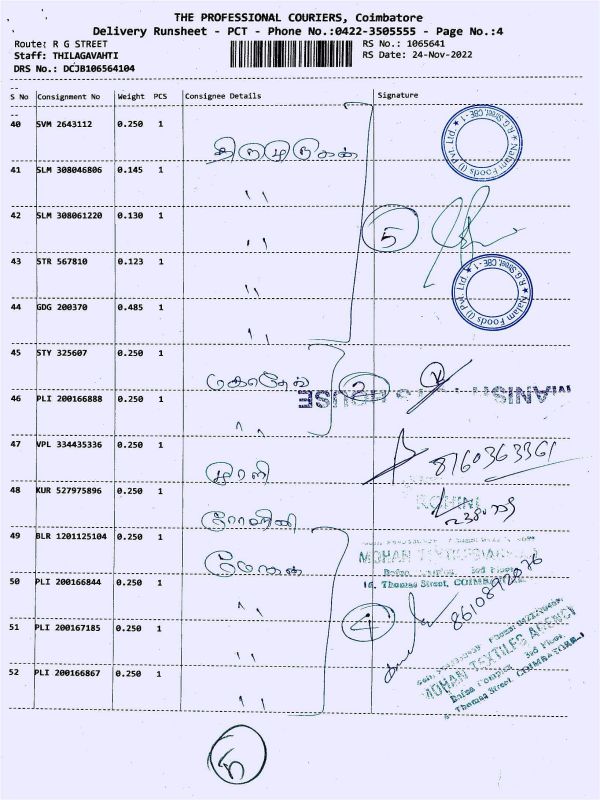 THE PROFESSIONAL COURIERS, Coimbatore
Delivery Runsheet - PCT - Phone No.:0422-3505555 - Page No.:4
Route: R G STREET
RS No.: 1065641
Staff: THILAGAVAHTI
RS Date: 24-Nov-2022
DRS No.: DCJB106564104
S No Consignment No Weight PCS Consignee Details Signature
40 SVM 2643112 0.250 1
41 SLM 308046806 0.145 1
" 
42 SLM 308061220 0.130 1
"
5
43 STR 567810 0.123 1
"
44 GDG 200370 0.485 1
"
Nalam Foods (I) Pvt. Ltd. ★ R G Street, CBE - 1 ★
Nalam Foods (I) Pvt. Ltd. ★ R G Street, CBE - 1 ★
45 STY 325607 0.250 1
2
46 PLI 200166888 0.250 1
"
47 VPL 334435336 0.250 1
முரளி
8760363361
48 KUR 527975896 0.250 1
ரோஹிணி
ROHINI
49 BLR 1201125104 0.250 1
மோகன்
MOHAN TEXTILES AGENCY
Bafna Complex 3rd Floor
Thomas Street, COIMBATORE
50 PLI 200166844 0.250 1
"
4
8610892076
51 PLI 200167185 0.250 1
"
52 PLI 200166867 0.250 1
"
MOHAN TEXTILES AGENCY
Bafna Complex 3rd Floor
Thomas Street, COIMBATORE-1